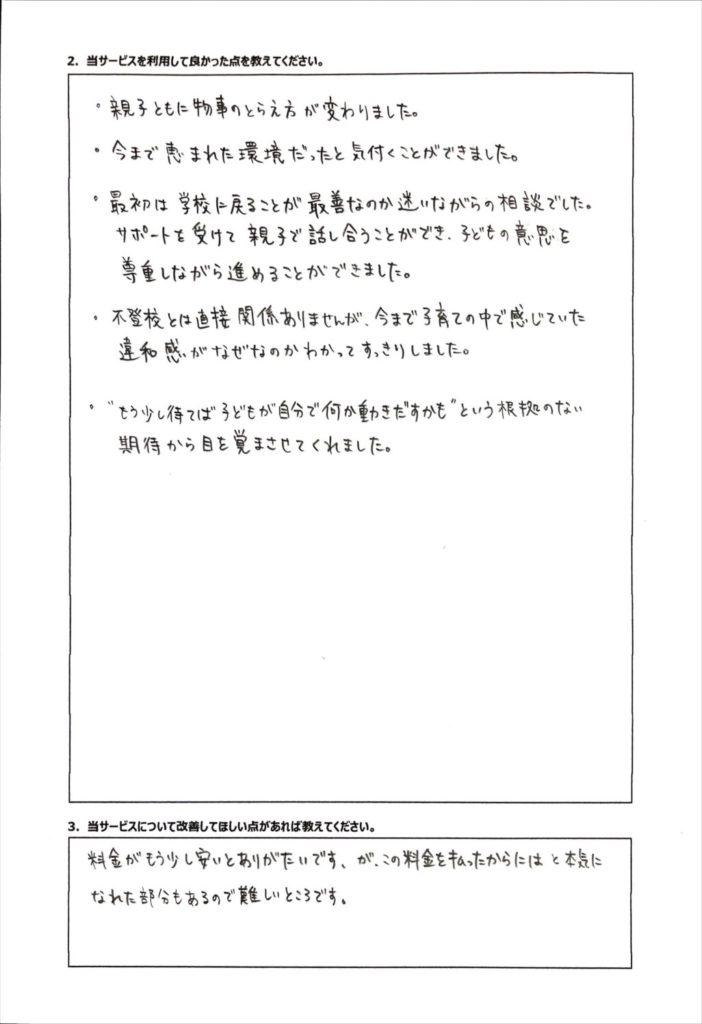 2. 当サービスを利用して良かった点を教えてください。
・親子ともに物事のとらえ方が変わりました。
・今まで恵まれた環境だったと気付くことができました。
・最初は学校に戻ることが最善なのか迷いながらの相談でした。
サポートを受けて親子で話し合うことができ、子どもの意思を
尊重しながら進めることができました。
・不登校とは直接関係ありませんが、今まで子育ての中で感じていた
違和感がなぜなのかわかってすっきりしました。
・"もう少し待てば子どもが自分で何か動きだすかも"という根拠のない
期待から目を覚まさせてくれました。
3. 当サービスについて改善してほしい点があれば教えてください。
料金がもう少し安いとありがたいです、が、この料金を払ったからにはと本気に
なれた部分もあるので難しいところです。